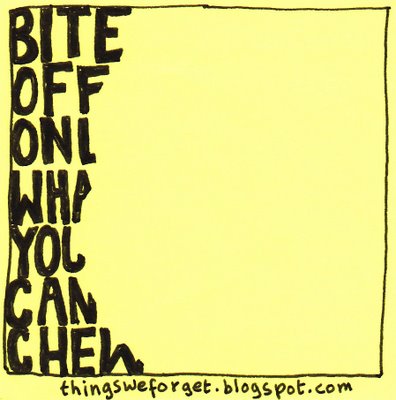 BITE
OFF
ONL
WHA
YOU
CAN
CHEW
thingsweforget.blogspot.com